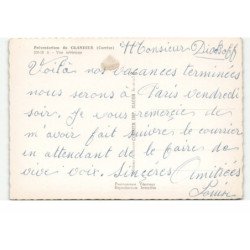 Présentation de CLANSAYES (Drôme)
Vue intérieure
Monsieur
Voilà nos vacances terminées
nous serons à Paris vendredi
soir. Je vous remercie de
m'avoir fait suivre le courrier
en attendant de le faire de
vive voix. Sincères Amitiés
Louise